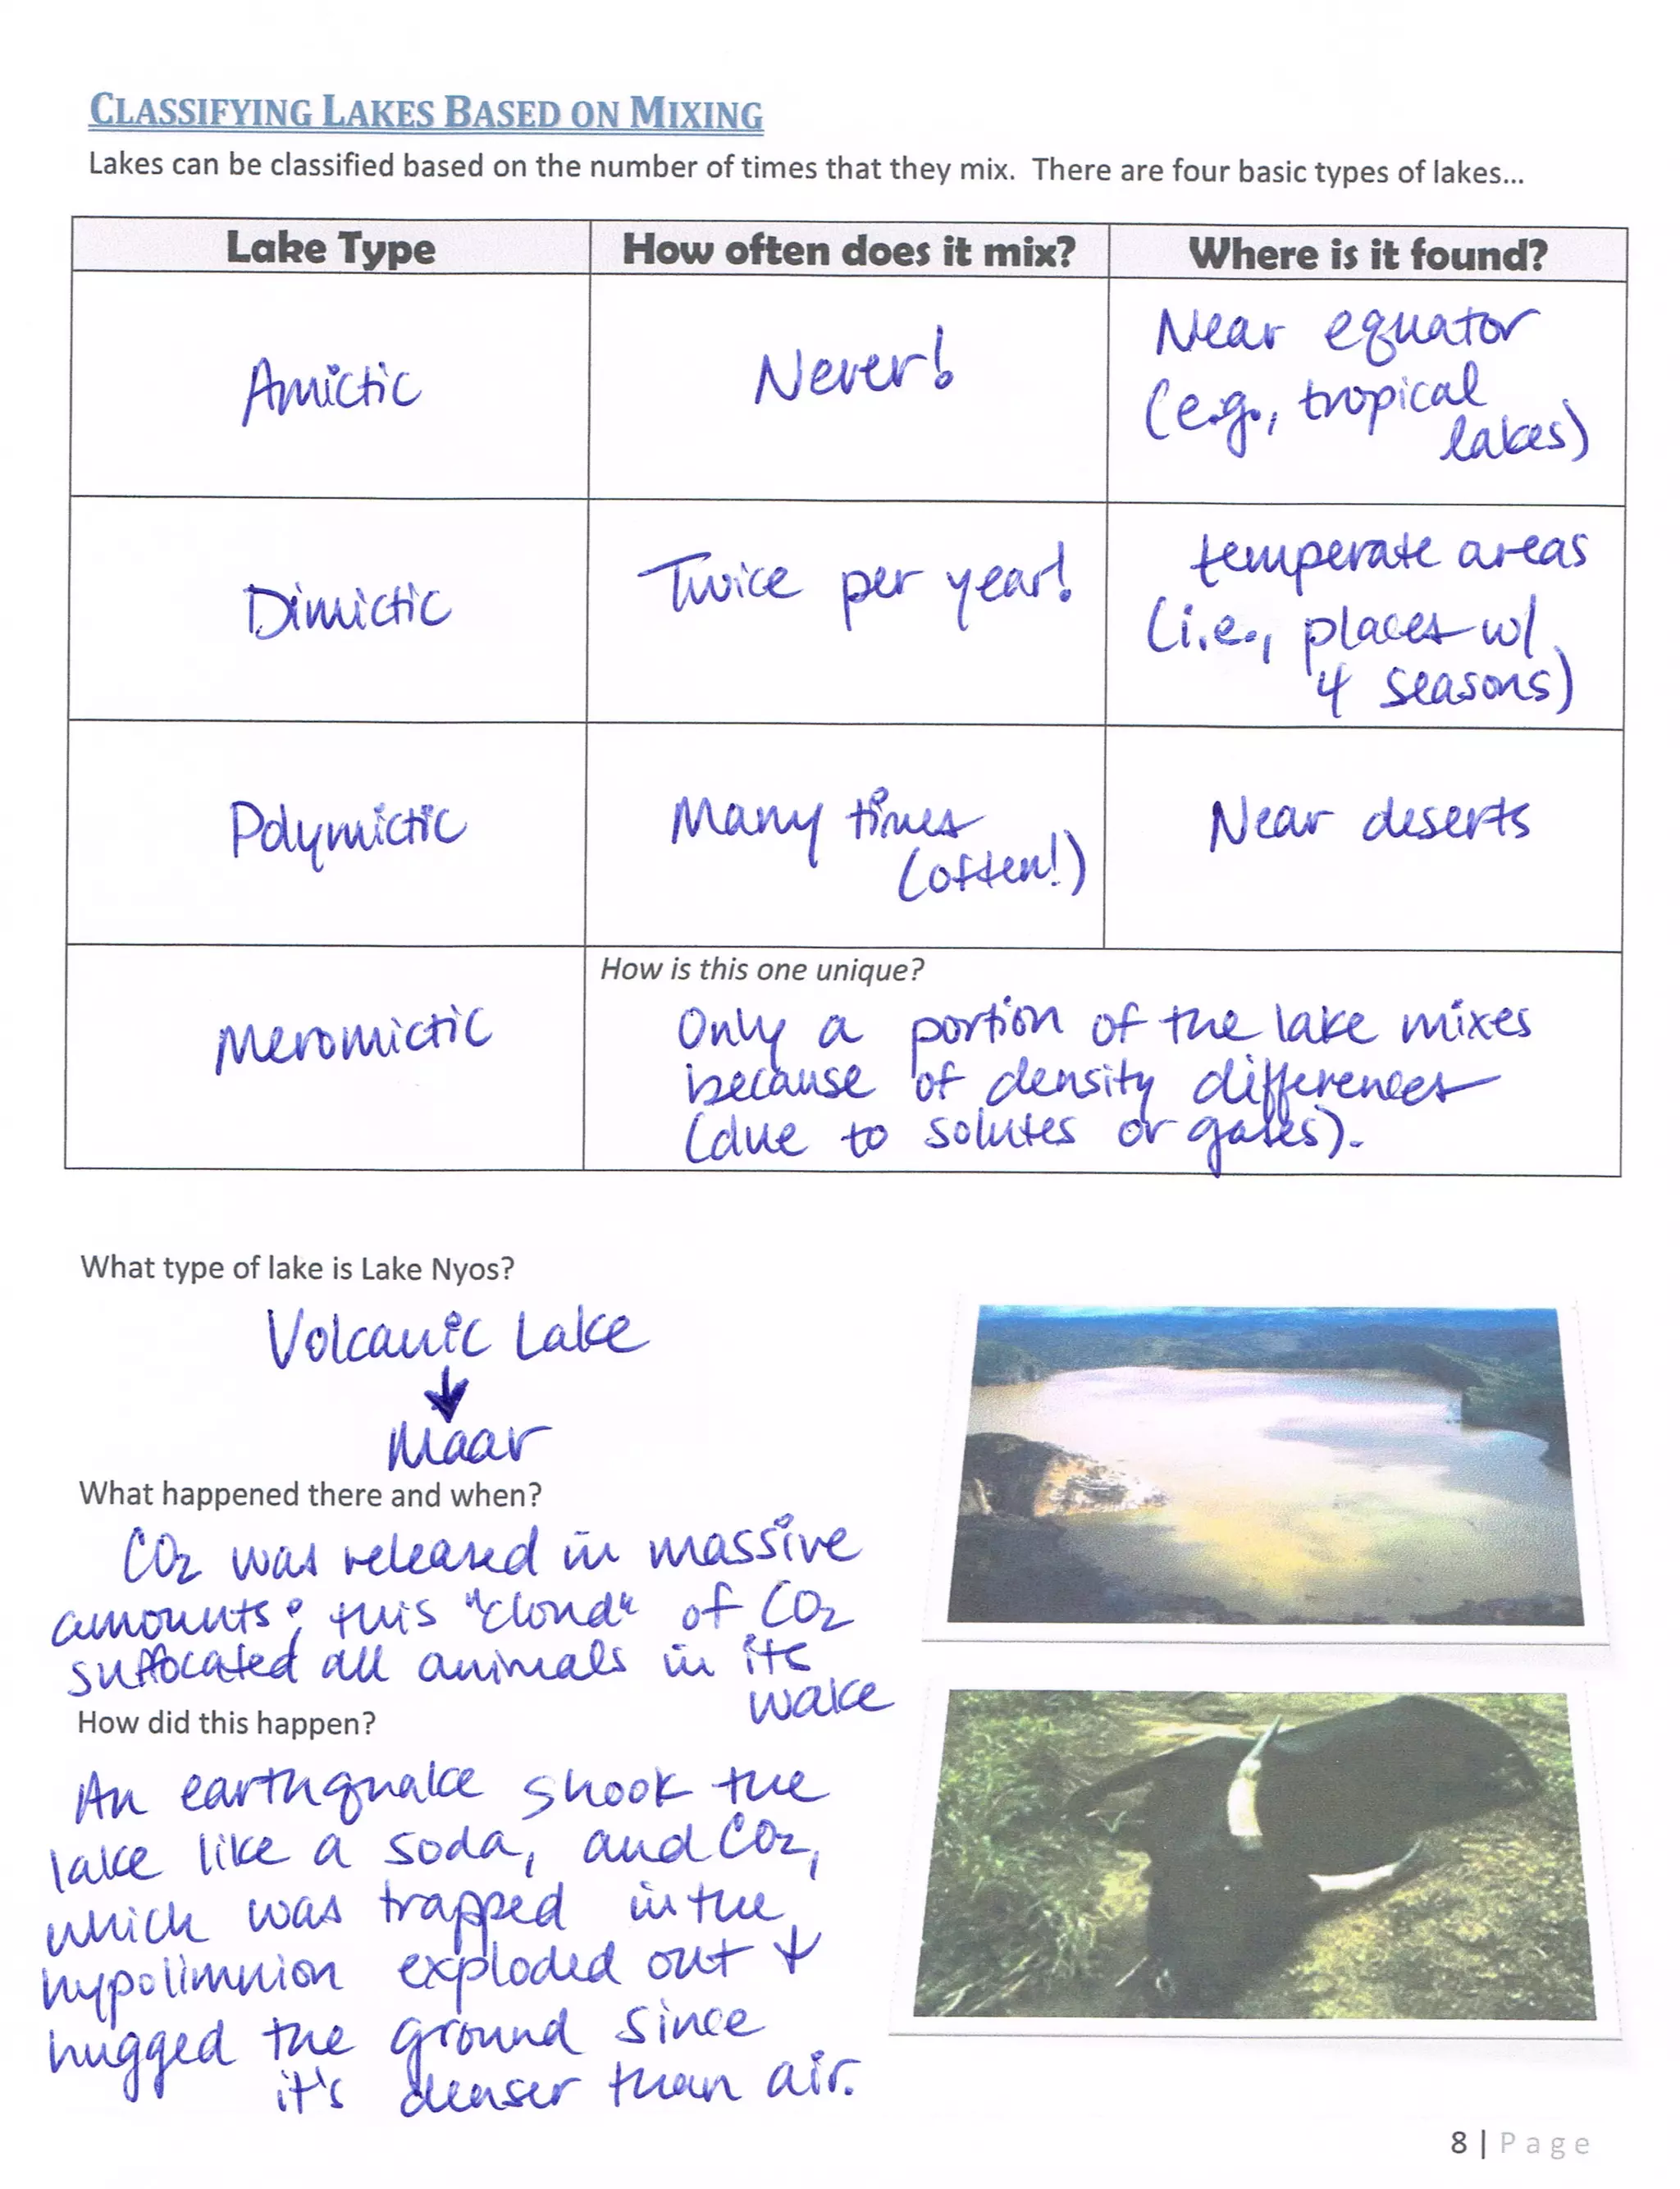 CLASSIFYING LAKES BASED ON MIXING
Lakes can be classified based on the number of times that they mix. There are four basic types of lakes...
Lake Type
How often does it mix?
Where is it found?
Amictic
Never!
Near equator
(e.g., tropical
lakes)
Dimictic
Twice per year!
temperate areas
(i.e., places w/
4 seasons)
Polymictic
Many times
(often!)
Near deserts
Meromictic
How is this one unique?
Only a portion of the lake mixes
because of density differences
(due to solutes or gases).
What type of lake is Lake Nyos?
Volcanic Lake
↓
Maar
What happened there and when?
CO₂ was released in massive
amounts; this "cloud" of CO₂
suffocated all animals in its
wake
How did this happen?
An earthquake shook the
lake like a soda, and CO₂,
which was trapped in the
hypolimnion exploded out +
hugged the ground since
it's denser than air.
8 | Page